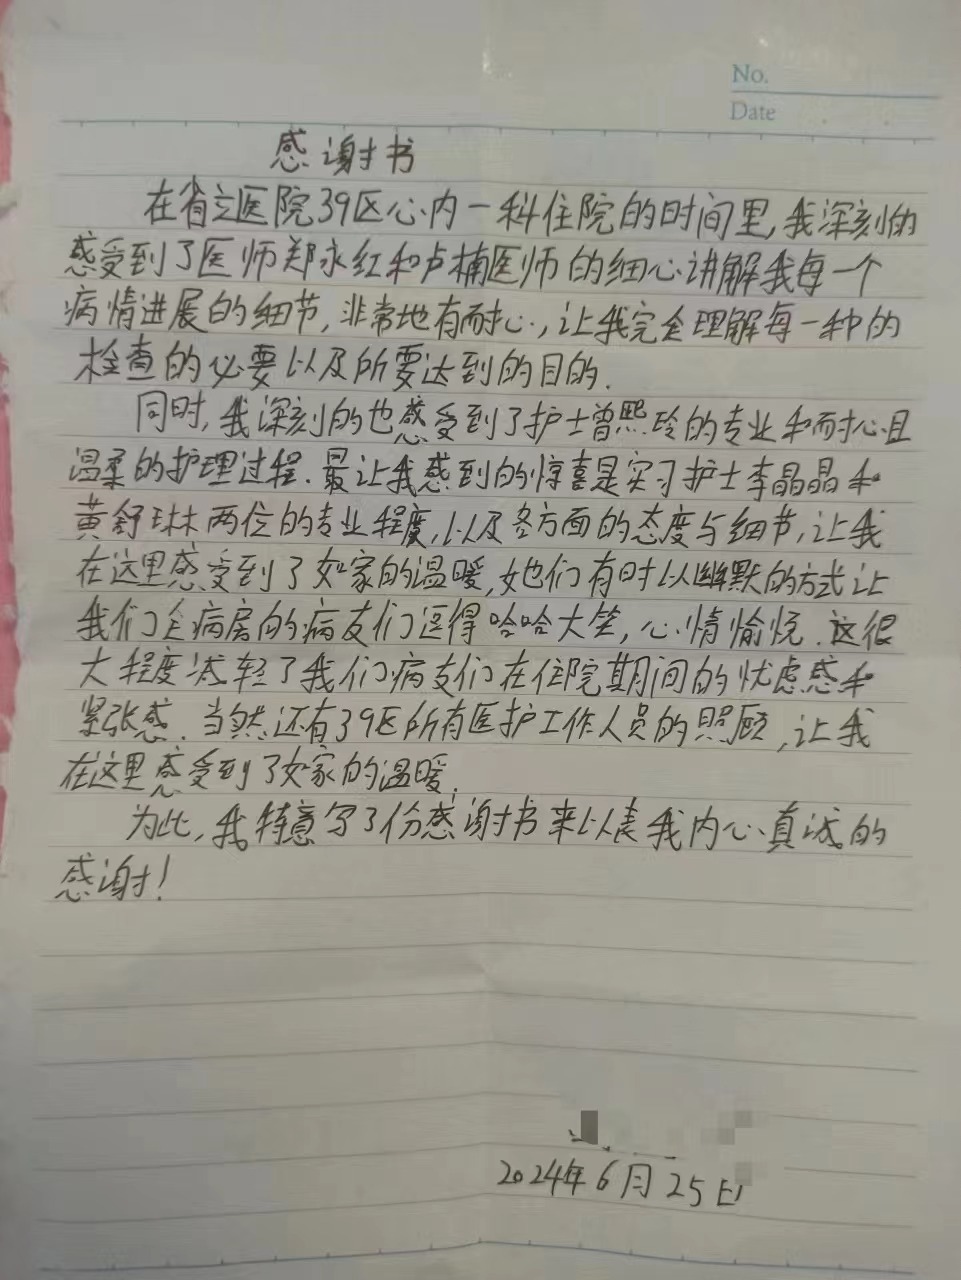 No.
Date
感谢书
在省立医院39区心内一科住院的时间里,我深刻的
感受到了医师郑永红和卢楠医师的细心讲解我每一个
病情进展的细节,非常地有耐心,让我完全理解每一种的
检查的必要以及所要达到的目的.
同时,我深刻的也感受到了护士曾熙玲的专业和耐心且
温柔的护理过程.最让我感到的惊喜是实习护士李晶晶和
黄舒琳两位的专业程度,以及各方面的态度与细节,让我
在这里感受到了如家的温暖,她们有时以幽默的方式让
我们全病房的病友们逗得哈哈大笑,心情愉悦.这很
大程度减轻了我们病友们在住院期间的忧虑感和
紧张感.当然还有39区所有医护工作人员的照顾,让我
在这里感受到了如家的温暖.
为此,我特意写了份感谢书来以表我内心真诚的
感谢!
2024年6月25日